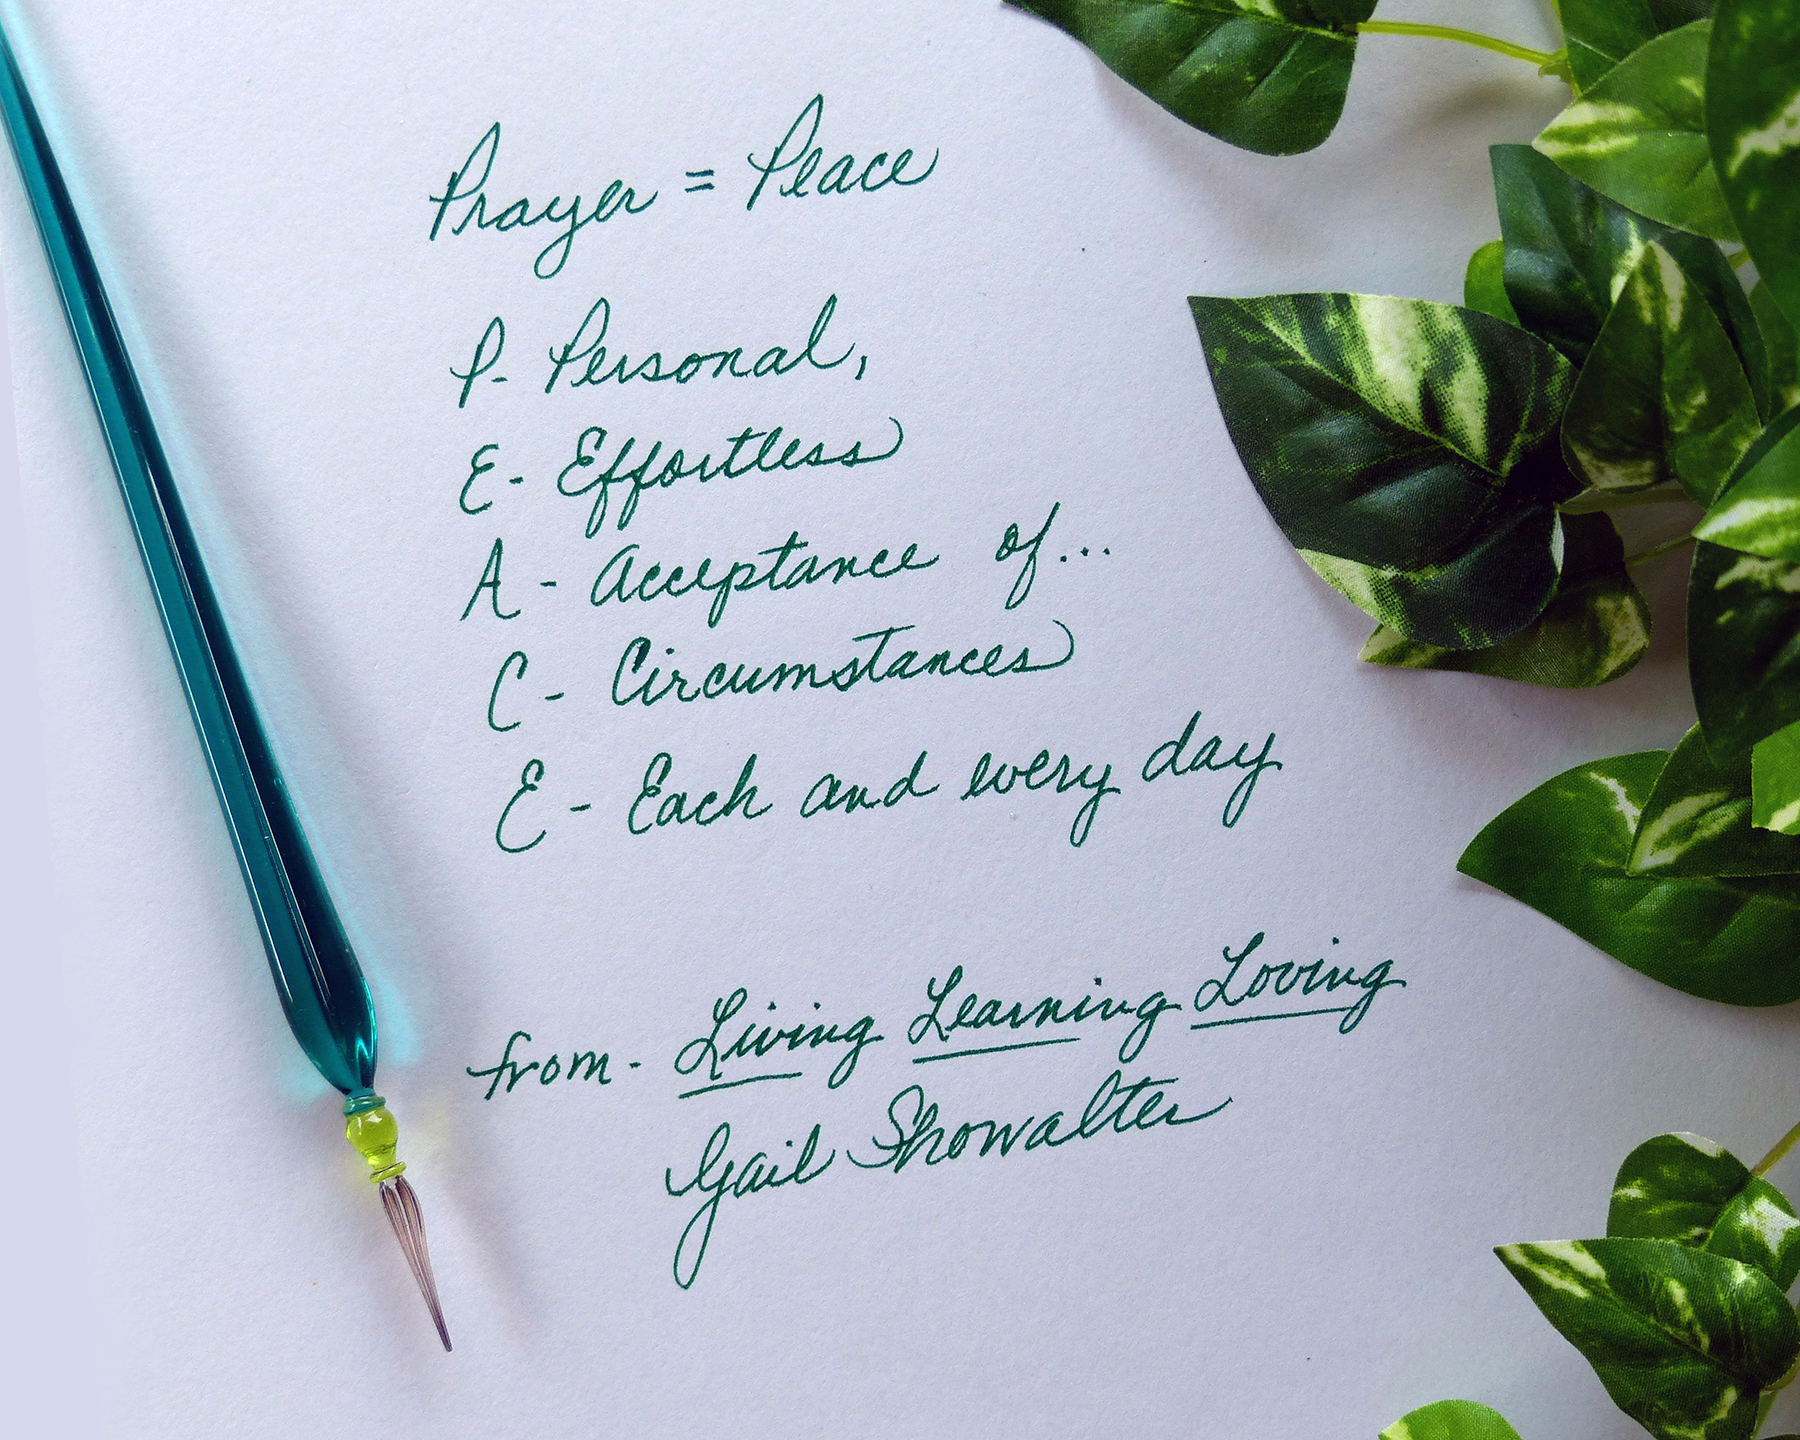 Prayer = Peace
P- Personal,
E- Effortless
A - Acceptance of...
C - Circumstances
E - Each and every day
from- Living Learning Loving
Gail Showalter